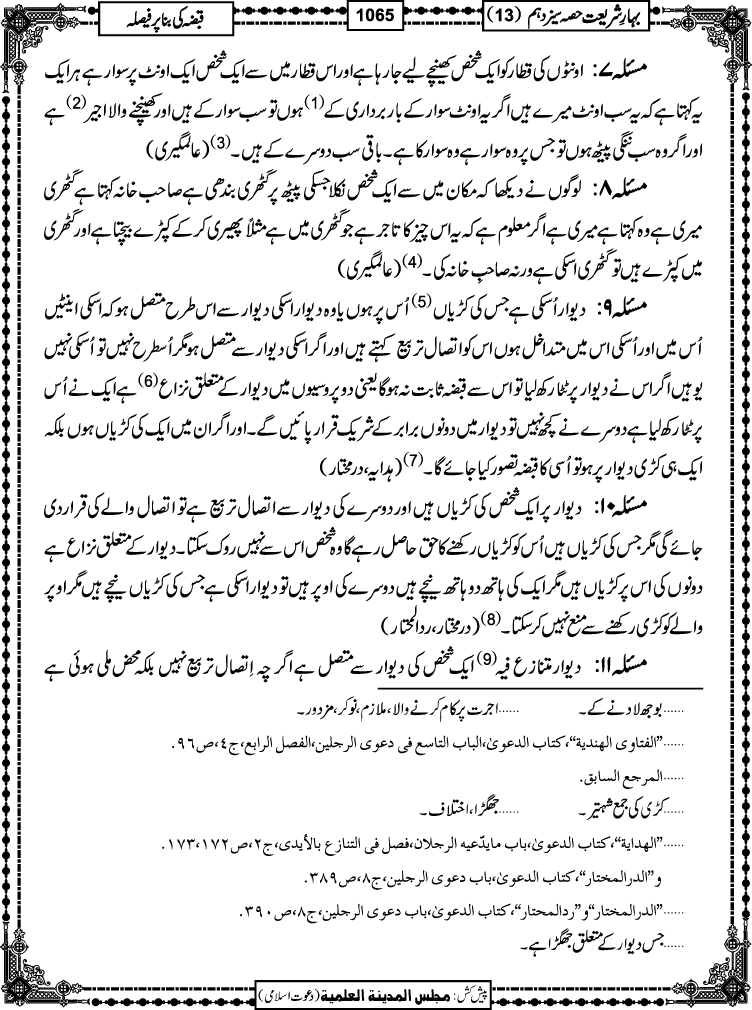 بہارِ شریعت حصہ سیزدہم (13)
1065
قبضہ کی بنا پر فیصلہ
مسئلہ ۷: اونٹوں کی قطار کو ایک شخص کھینچے لیے جا رہا ہے اور اس قطار میں سے ایک شخص ایک اونٹ پر سوار ہے ہر ایک
یہ کہتا ہے کہ یہ سب اونٹ میرے ہیں اگر یہ اونٹ سوار کے بار برداری کے (1) ہوں تو سب سوار کے ہیں اور کھینچنے والا اجیر (2) ہے
اور اگر وہ سب ننگی پیٹھ ہوں تو جس پر وہ سوار ہے وہ سوار کا ہے۔ باقی سب دوسرے کے ہیں۔ (3) (عالمگیری)
مسئلہ ۸: لوگوں نے دیکھا کہ مکان میں سے ایک شخص نکلا جسکی پیٹھ پر گٹھری بندھی ہے صاحب خانہ کہتا ہے گٹھری
میری ہے وہ کہتا ہے میری ہے اگر معلوم ہے کہ یہ اس چیز کا تاجر ہے جو گٹھری میں ہے مثلاً پھیری کر کے کپڑے بیچتا ہے اور گٹھری
میں کپڑے ہیں تو گٹھری اسکی ہے ورنہ صاحبِ خانہ کی۔ (4) (عالمگیری)
مسئلہ ۹: دیوار اُسکی ہے جس کی کڑیاں (5) اُس پر ہوں یا وہ دیوار اسکی دیوار سے اس طرح متصل ہو کہ اسکی اینٹیں
اُس میں اور اُسکی اس میں متداخل ہوں اس کو اتصال تربیع کہتے ہیں اور اگر اسکی دیوار سے متصل ہو مگر اُسطرح نہیں تو اُسکی نہیں
یوہیں اگر اس نے دیوار پر ٹٹا رکھ لیا تو اس سے قبضہ ثابت نہ ہوگا یعنی دو پروسیوں میں دیوار کے متعلق نزاع (6) ہے ایک نے اُس
پر ٹٹا رکھ لیا ہے دوسرے نے کچھ نہیں تو دیوار میں دونوں برابر کے شریک قرار پائیں گے۔ اور اگر ان میں ایک کی کڑیاں ہوں بلکہ
ایک ہی کڑی دیوار پر ہو تو اُسی کا قبضہ تصور کیا جائے گا۔ (7) (ہدایہ، درمختار)
مسئلہ ۱۰: دیوار پر ایک شخص کی کڑیاں ہیں اور دوسرے کی دیوار سے اتصال تربیع ہے تو اتصال والے کی قرار دی
جائے گی مگر جس کی کڑیاں ہیں اُس کو کڑیاں رکھنے کا حق حاصل رہے گا وہ شخص اس سے نہیں روک سکتا۔ دیوار کے متعلق نزاع ہے
دونوں کی اس پر کڑیاں ہیں مگر ایک کی ہاتھ دو ہاتھ نیچے ہیں دوسرے کی اوپر ہیں تو دیوار اسکی ہے جس کی کڑیاں نیچے ہیں مگر اوپر
والے کو کڑی رکھنے سے منع نہیں کر سکتا۔ (8) (درمختار، ردالمحتار)
مسئلہ ۱۱: دیوار متنازع فیہ (9) ایک شخص کی دیوار سے متصل ہے اگر چہ اِتصال تربیع نہیں بلکہ محض ملی ہوئی ہے
......بوجھ لادنے کے۔ ......اجرت پر کام کرنے والا، ملازم، نوکر، مزدور۔
......"الفتاوی الهندية"، كتاب الدعویٰ، الباب التاسع فی دعوی الرجلين، الفصل الرابع، ج٤، ص٩٦.
......المرجع السابق.
......کڑی کی جمع شہتیر۔ ......جھگڑا، اختلاف۔
......"الهداية"، كتاب الدعویٰ، باب مايدّعيه الرجلان، فصل فی التنازع بالأيدی، ج٢، ص١٧٣،١٧٢.
و"الدرالمختار"، كتاب الدعویٰ، باب دعوی الرجلين، ج٨، ص٣٨٩.
......"الدرالمختار" و"ردالمحتار"، كتاب الدعویٰ، باب دعوی الرجلين، ج٨، ص٣٩٠.
......جس دیوار کے متعلق جھگڑا ہے۔
پیش کش: مجلس المدينة العلمية (دعوت اسلامی)